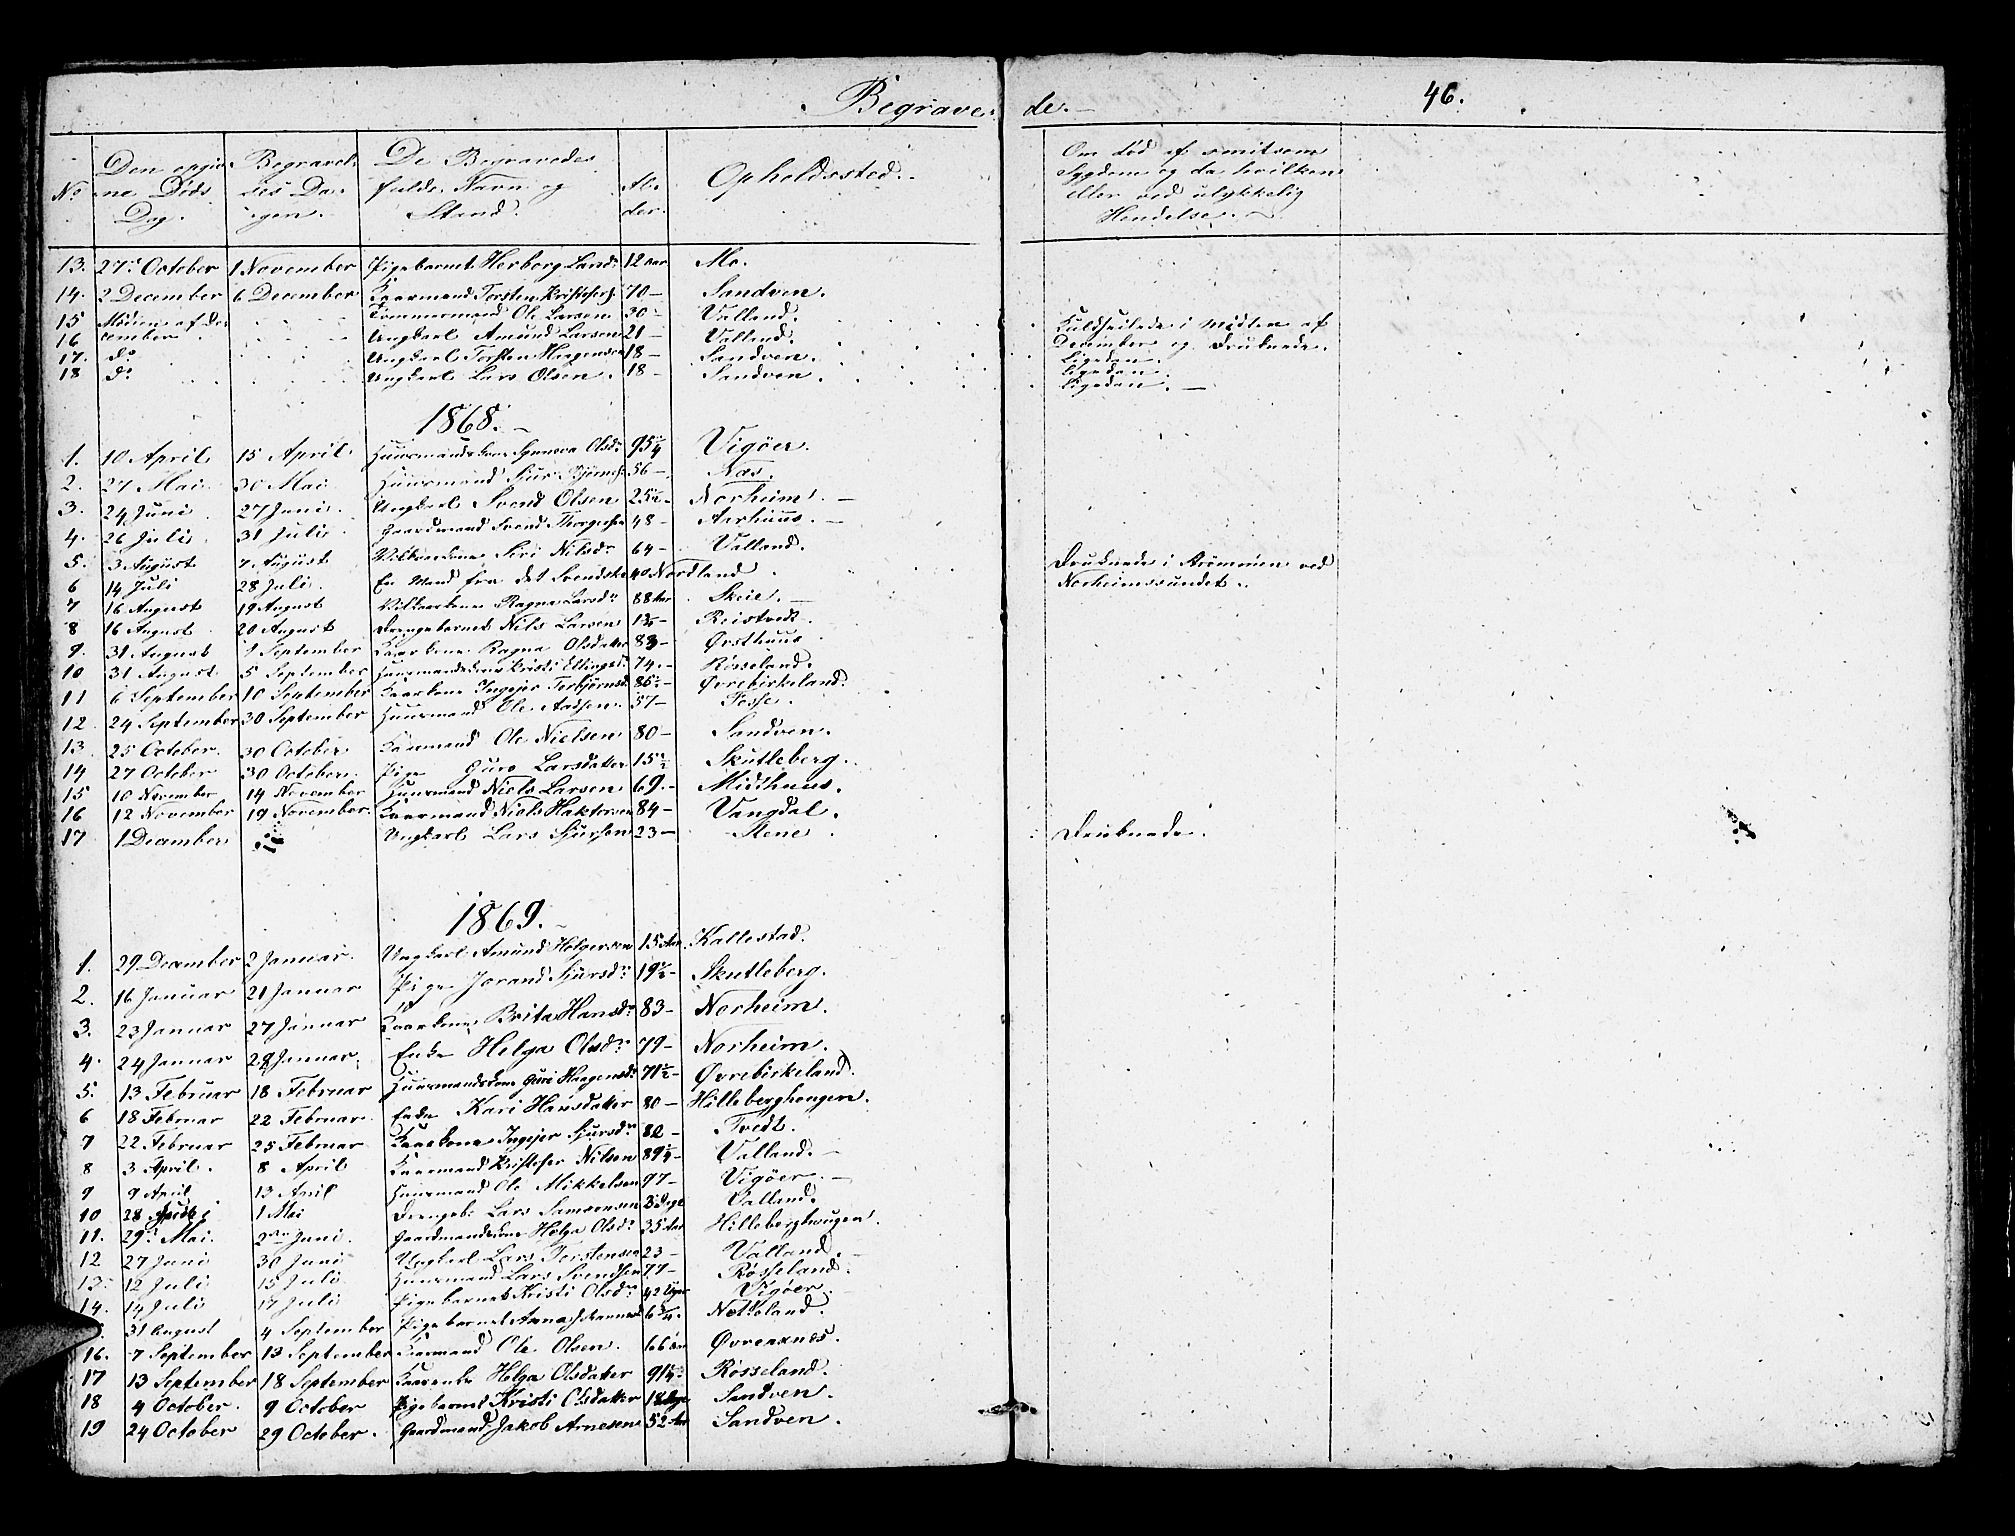 Begrave-
de.
46.
No
Den opgiv-
ne Døds
Dag.
Begravel-
ses Da-
gen.
De Begravedes
fulde Navn og
Stand.
Al-
der.
Opholdssted.
Om død af smitsom
Sygdom og da hvilken
eller ved ulykkelig
Hendelse.
13. 27. October 1 November Pigebarnet Herborg Larsdr 12 aar Mo.
14. 2 December 6 December Kaarmand Torsten Kristofers. 70 - Sandven.
15 Midten af De- Tømmermand Ole Larsen 30 - Valland. Kuldseilede i Midten af
16 cember Ungkarl Amund Larsen 21 - Valland. December og Druknede.
17. do Ungkarl Torsten Haagensen 18 - Sandven. Ligedan.
18 do Ungkarl Lars Olsen. 18 - Sandven. Ligedan.
Ligedan.
1868.
1. 10 April 15 April Huusmandskone Synneva Olsdr 95 1/4 Vigøer.
2. 27 Mai 30 Mai Huusmand Sjur Bjørns. 56 - Næs.
3. 24 Juni 27 Juni. Ungkarl Svend Olsen 25 1/2 - Norheim. -
4. 26 Juli 31 Juli Gaardmand Svend Thorgersen 48 - Aarhuus. -
5. 3 August 7 August Vilkaarskone Siri Nilsdr 64 - Valland.
6 14 Juli 28 Juli. En Mand fra det Svendske 40 Nordland. Druknede i Strømmen ved
Norheimssundet.
7 16 August 19 August Vilkaarkone Ragna Larsdr 88 Aar Skeie. -
8 16 August 20 August Drengebarnet Nils Larsen 1 3/4 - Reistvedt
9. 31 August 4 September Kaarkone Ragna Olsdatter 83 - Ørsthuus
10 31 August 5 September Huusmandskone Kristi Ellingsdr 74. - Røsseland.
11 6 September 10 September Kaarkone Ingejer Torbjørnsd 86 1/2 - Øvrebirkeland.
12. 24 September 30 September Huusmand Ole Aadsen. 57 - Fosse.
13. 25 October 30 October Kaarmand Ole Nielsen 80 - Sandven.
14 27 October 30 October. Pige Guro Larsdatter 15 1/2 Skutleberg.
15 10 November 14 November Huusmand Niels Larsen 69. - Midthuus.
16 12 November 19 November. Kaarmand Niels Haktorsen 84 - Vangdal.
17 1 December Ungkarl Lars Sjursen 23 - Stene Druknede.
1869.
1. 29 December 2 Januar. Ungkarl Amund Holgersen 15 Aar. Kallestad.
2. 16 Januar 21 Januar Pige Jorand Sjursdr 19 1/2 - Skutleberg.
3. 23 Januar 27 Januar Kaarkone Brita Hansdr 83 - Norheim.
4. 24 Januar 29 Januar. Enke Helga Olsdr 79 - Norheim.
5. 13 Februar 18 Februar Huusmandskone Guri Haagensdr 71 1/2 - Øvrebirkeland.
6 18 Februar 22 Februar. Enke Kari Hansdatter 80 - Hilleberghougen.
7 22 Februar 25 Februar Kaarkone Ingejer Sjursdr 82 - Tvedt.
8 3 April. 8 April Kaarmand Kristofer Nilsen 89 1/4 - Valland. -
9 9 April 13 April Huusmand Ole Mikkelsen 97 - Vigøer -
10 28 April 1 Mai Drengeb. Lars Samsonsen 3 Dage Valland.
11. 29. Mai. 2den Juni. Gaardmandskone Helga Olsdr 35 Aar Hilleberghougen.
12 27 Juni 30 Juni Ungkarl Lars Torstensen 23 - Valland. -
13 12 Juli 15 Juli Huusmand Lars Svendsen 77 - Røsseland.
14. 14 Juli 17 Juli Pigebarnet Kristi Olsdr 42 Uger Vigøer -
31 August 4 September Pigebarnet Anna Johannesd 6 3/4. Netteland.
16. 7 September 13 September Kaarmand Ole Olsen. 66 Aar Øvreaxnes.
17 13 September 18 September Kaarenke Helga Olsdatter 91 1/4 Røsseland.
18 4 October. 9 October Pigebarnet Kristi Olsdatter 18 Dage Sandven.
19 24 October 29 October. Gaardmand Jakob Arnesen 52 Aar Sandven.